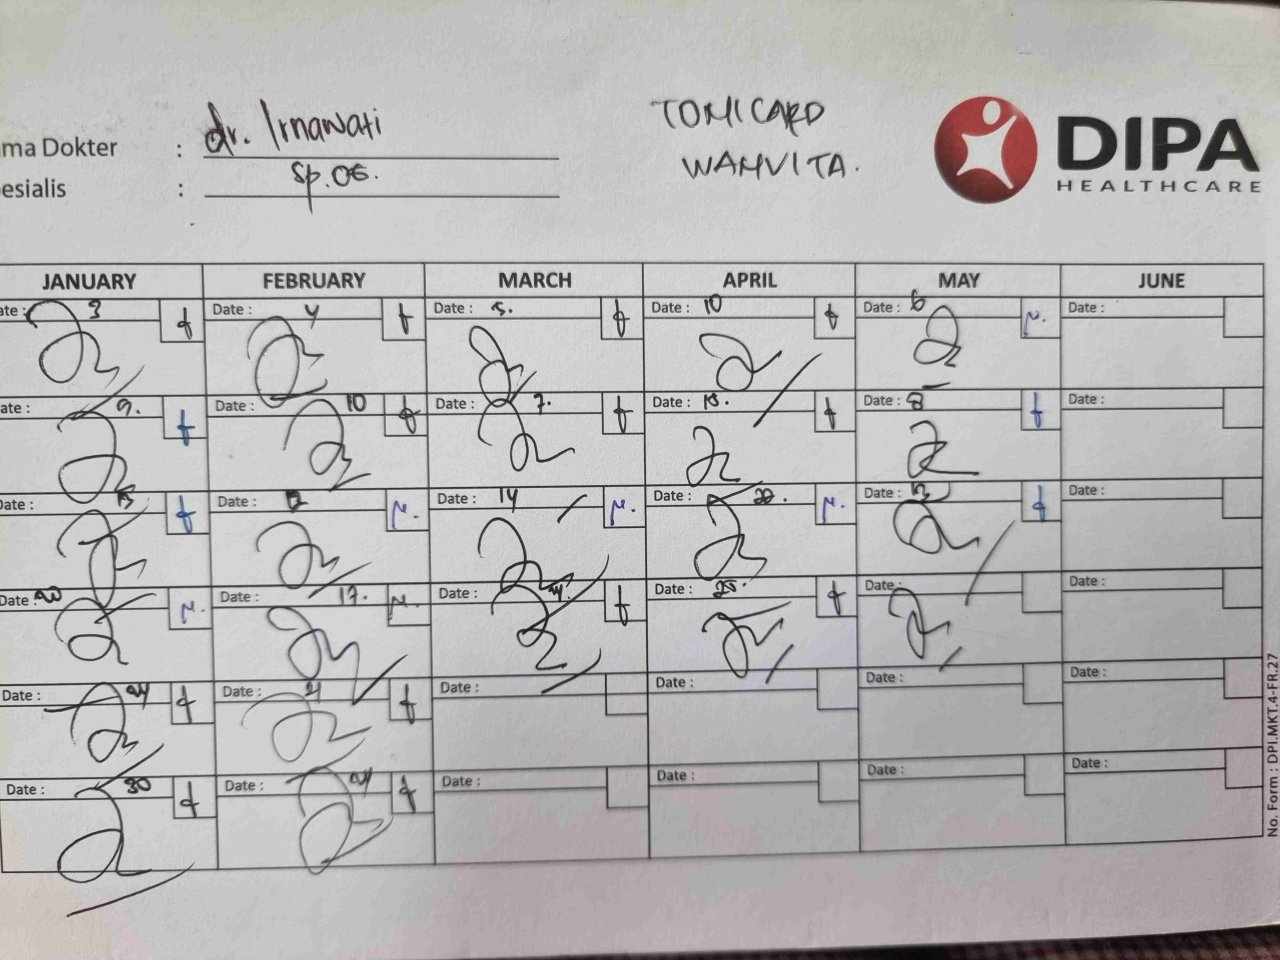 dr. Irnawati
TOMICARD
ma Dokter :
esialis : Sp.OG.
WAMVITA.
DIPA
HEALTHCARE
JANUARY FEBRUARY MARCH APRIL MAY JUNE
ate: 3 Date : 4 Date : 5. Date : 10 Date : 6 Date :
ate : 9. Date : 10 Date : 7. Date : 15. Date : 8 Date :
Date : 15 Date : 12 Date : 14 Date : 22. Date : 13 Date :
Date : 20 Date : 17. Date : 24. Date : 25. Date : Date :
Date : 24 Date : 21 Date : Date : Date : Date :
Date : 30 Date : 24 Date : Date : Date : Date :
No. Form : DPI.MKT.4-FR.27